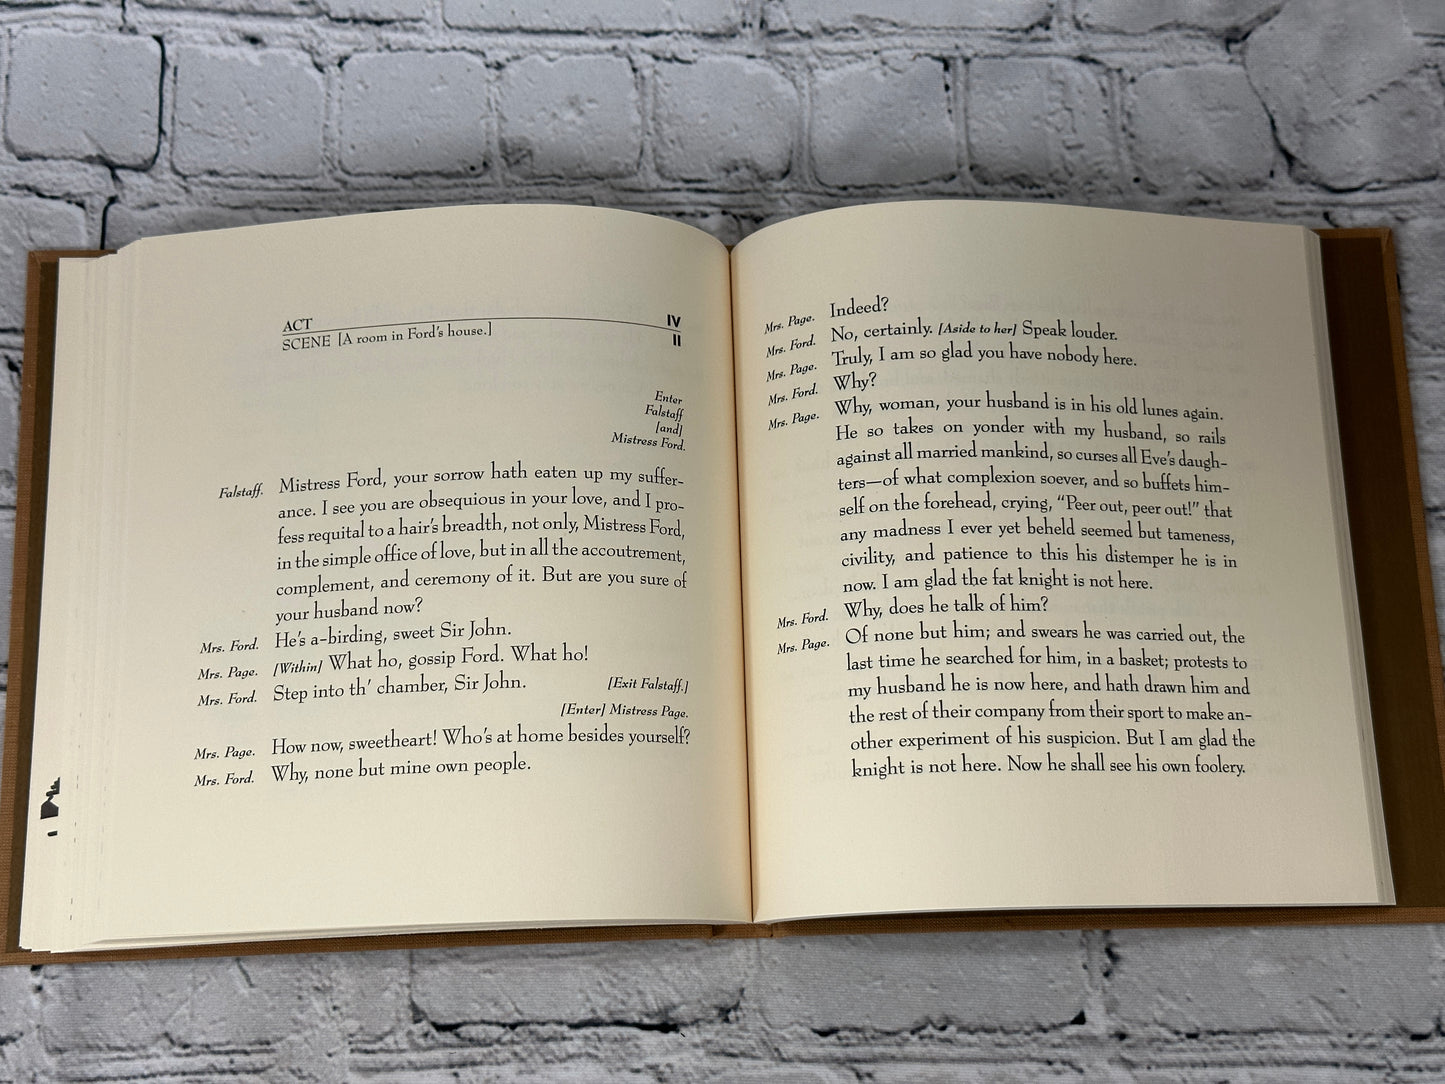 ACT IV
SCENE [A room in Ford's house.] II
Enter
Falstaff
[and]
Mistress Ford.
Falstaff. Mistress Ford, your sorrow hath eaten up my suffer-
ance. I see you are obsequious in your love, and I pro-
fess requital to a hair's breadth, not only, Mistress Ford,
in the simple office of love, but in all the accoutrement,
complement, and ceremony of it. But are you sure of
your husband now?
Mrs. Ford. He's a-birding, sweet Sir John.
Mrs. Page. [Within] What ho, gossip Ford. What ho!
Mrs. Ford. Step into th' chamber, Sir John. [Exit Falstaff.]
[Enter] Mistress Page.
Mrs. Page. How now, sweetheart! Who's at home besides yourself?
Mrs. Ford. Why, none but mine own people.
Mrs. Page. Indeed?
Mrs. Ford. No, certainly. [Aside to her] Speak louder.
Mrs. Page. Truly, I am so glad you have nobody here.
Mrs. Ford. Why?
Mrs. Page. Why, woman, your husband is in his old lunes again.
He so takes on yonder with my husband, so rails
against all married mankind, so curses all Eve's daugh-
ters—of what complexion soever, and so buffets him-
self on the forehead, crying, "Peer out, peer out!" that
any madness I ever yet beheld seemed but tameness,
civility, and patience to this his distemper he is in
now. I am glad the fat knight is not here.
Mrs. Ford. Why, does he talk of him?
Mrs. Page. Of none but him; and swears he was carried out, the
last time he searched for him, in a basket; protests to
my husband he is now here, and hath drawn him and
the rest of their company from their sport to make an-
other experiment of his suspicion. But I am glad the
knight is not here. Now he shall see his own foolery.